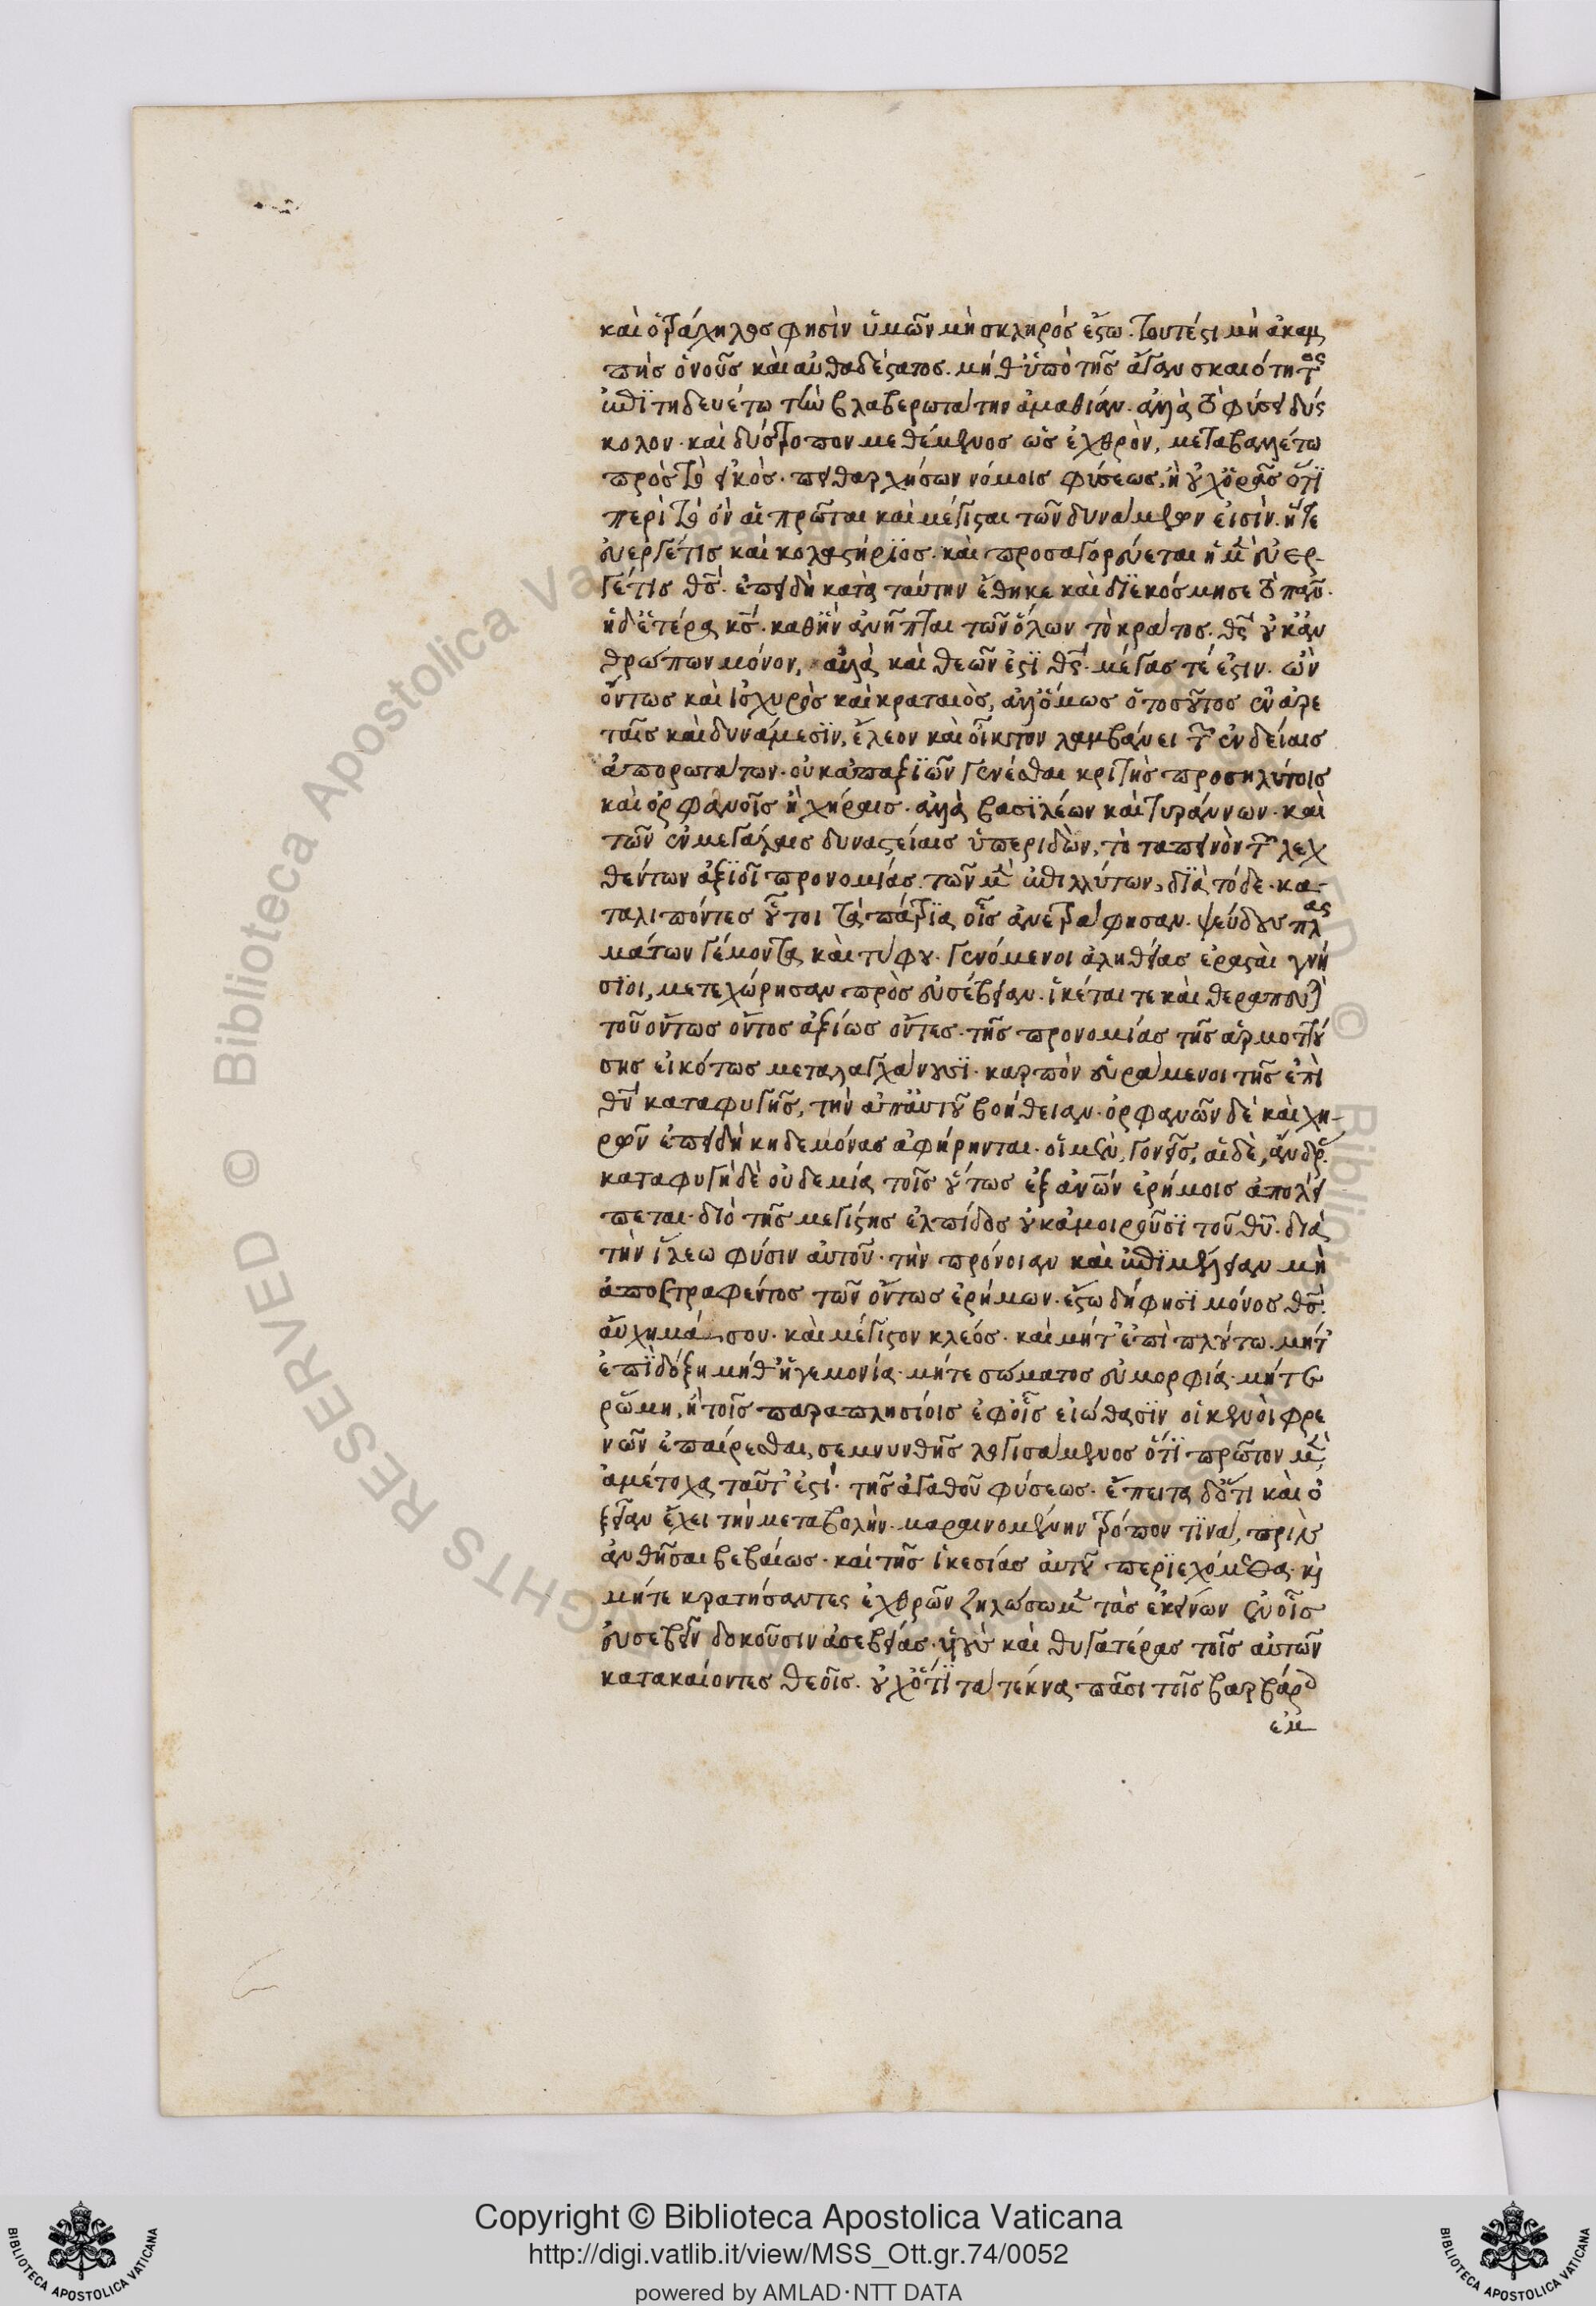 καὶ ὁ τράχηλος φησὶν ὑμῶν μὴ σκληρὸς ἔστω. τουτέστι μὴ ἀκαμ
πὴς ὁ νοῦς καὶ αὐθαδέστατος. μήθ' ὑπὸ τῆς ἄγαν σκαιότητος
ἐπιτηδευέτω τὴν βλαβερωτάτην ἀμαθίαν. ἀλλὰ τὸ φύσει δύς
κολον. καὶ δύστροπον μεθέμενος ὡς ἐχθρὸν, μεταβαλλέτω
πρὸς τὸ εἰκὸς. πειθαρχήσων νόμοις φύσεως. ἢ οὐχ ὁρᾷς ὅτι
περὶ τὸ ὂν αἱ πρῶται καὶ μέγισται τῶν δυνάμεων εἰσὶν. ἥτε
εὐεργέτις καὶ κολαστήριος. καὶ προσαγορεύεται ἡ μὲν εὐερ-
γέτις θς. ἐπειδὴ κατὰ ταύτην ἔθηκε καὶ διεκόσμησε τὸ πᾶν.
ἡ δ' ἑτέρα κς. καθ' ἣν ἀνῆπται τῶν ὅλων τὸ κράτος. θς οὐκ ἀν
θρώπων μόνον, ἀλλὰ καὶ θεῶν ἐστὶ θς. μέγας τέ ἐστιν. ὢν
ὄντως καὶ ἰσχυρὸς καὶ κραταιὸς, ἀλλ' ὅμως ὁ τοσοῦτος ἐν ἀρε
ταῖς καὶ δυνάμεσιν, ἔλεον καὶ οἶκτον λαμβάνει τῶν ἐν δείαις
ἀπορωτάτων. οὐκ ἀπαξιῶν γενέσθαι κριτὴς προσηλύτοις
καὶ ὀρφανοῖς ἢ χήραις. ἀλλὰ βασιλέων καὶ τυράννων. καὶ
τῶν ἐν μεγάλαις δυναστείαις ὑπεριδὼν, τὸ ταπεινὸν τῶν λεχ
θέντων ἀξιοῖ προνομίας. τῶν μὲν ἐπιλλύτων, διὰ τόδε. κα-
ταλιπόντες οὗτοι τὰ πάτρια οἷς ἀνετράφησαν. ψεύδους πλας
μάτων γέμοντα καὶ τύφου. γενόμενοι ἀληθείας ἐρασταὶ γνή
σιοι, μετεχώρησαν πρὸς εὐσέβειαν. ἱκέται τε καὶ θεραπευταὶ
τοῦ ὄντως ὄντος ἀξίως ὄντες. τῆς προνομίας τῆς ἁρμοττού
σης εἰκότως μεταλαγχάνουσι. καρπὸν εὑράμενοι τῆς ἐπὶ
θν καταφυγῆς, τὴν ἀπ' αὐτοῦ βοήθειαν. ὀρφανῶν δὲ καὶ χη-
ρῶν ἐπειδὴ κηδεμόνας ἀφήρηνται. οἱ μὲν, γονεῖς, αἱ δὲ, ἄνδρας
καταφυγὴ δὲ οὐδεμία τοῖς οὕτως ἐξ ἀνῶν ἐρήμοις ἀπολεί
πεται. διὸ τῆς μεγίστης ἐλπίδος οὐκ ἀμοιροῦσι τοῦ θυ. διὰ
τὴν ἵλεω φύσιν αὐτοῦ. τὴν πρόνοιαν καὶ ἐπιμέλειαν μὴ
ἀποστραφέντος τῶν ὄντως ἐρήμων. ἔστω δή φησι μόνος θς.
αὔχημά σου. καὶ μέγιστον κλεός. καὶ μήτ' ἐπὶ πλούτω. μήτ'
ἐπὶ δόξη μήθ' ἡγεμονία. μήτε σώματος εὐμορφία. μήτε
ρώμη, ἢ τοῖς παραπλησίοις ἐφ' οἷς εἰώθασιν οἱ κενοὶ φρε
νῶν ἐπαίρεσθαι, σεμνυνθῆς λογισάμενος ὅτι πρῶτον μὲν
ἀμέτοχα ταῦτ' ἐστὶ. τῆς ἀγαθοῦ φύσεως. ἔπειτα δ' ὅτι καὶ ὀ
ξεῖαν ἔχει τὴν μεταβολὴν. μαραινομένην τρόπον τινα, πρὶν
ἀνθῆσαι βεβαίως. καὶ τῆς ἱκεσίας αὐτοῦ περιεχόμεθα. καὶ
μήτε κρατήσαντες ἐχθρῶν ζηλώσωμεν τὰς ἐκείνων ἐν οἷς
εὐσεβεῖν δοκοῦσιν ἀσεβείας. υἱοὺς καὶ θυγατέρας τοῖς αὐτῶν
κατακαίοντες θεοῖς. οὐχ ὅτι τα τέκνα πᾶσι τοῖς βαρβάροις
Copyright © Biblioteca Apostolica Vaticana
http://digi.vatlib.it/view/MSS_Ott.gr.74/0052
powered by AMLAD·NTT DATA